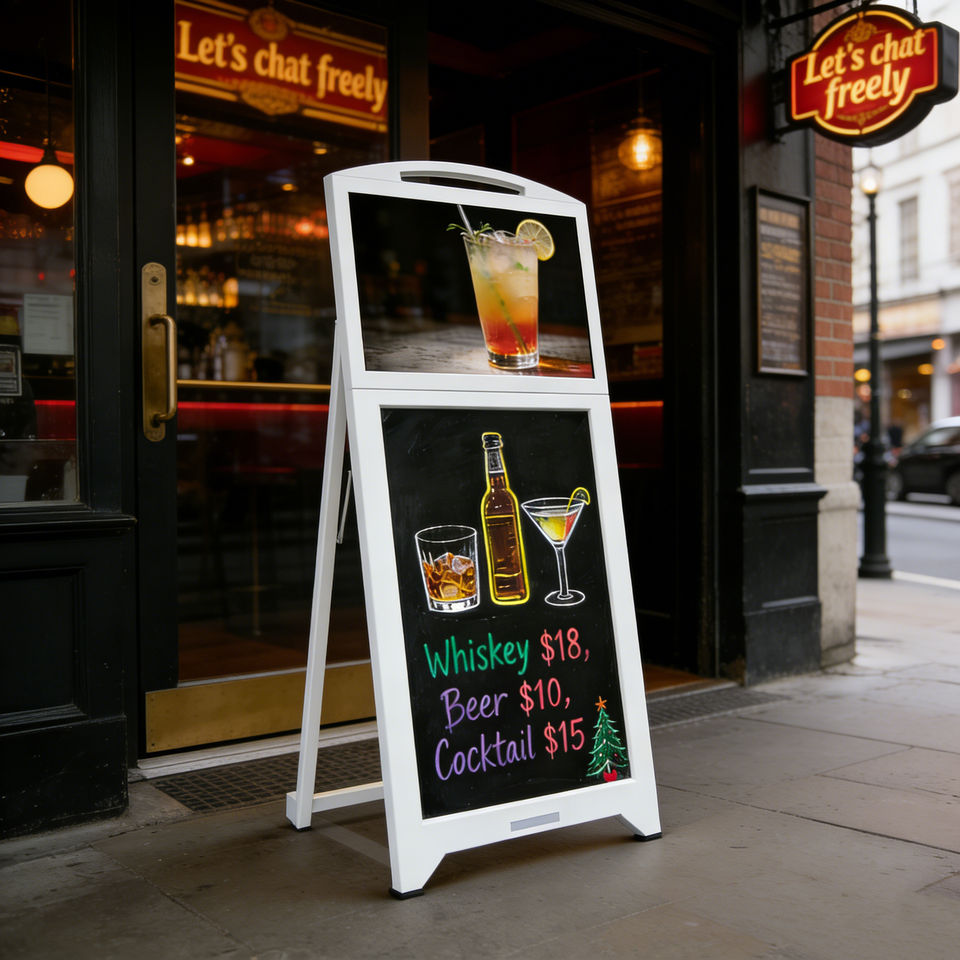 Let's chat freely
Let's chat
freely
Whiskey $18,
Beer $10,
Cocktail $15